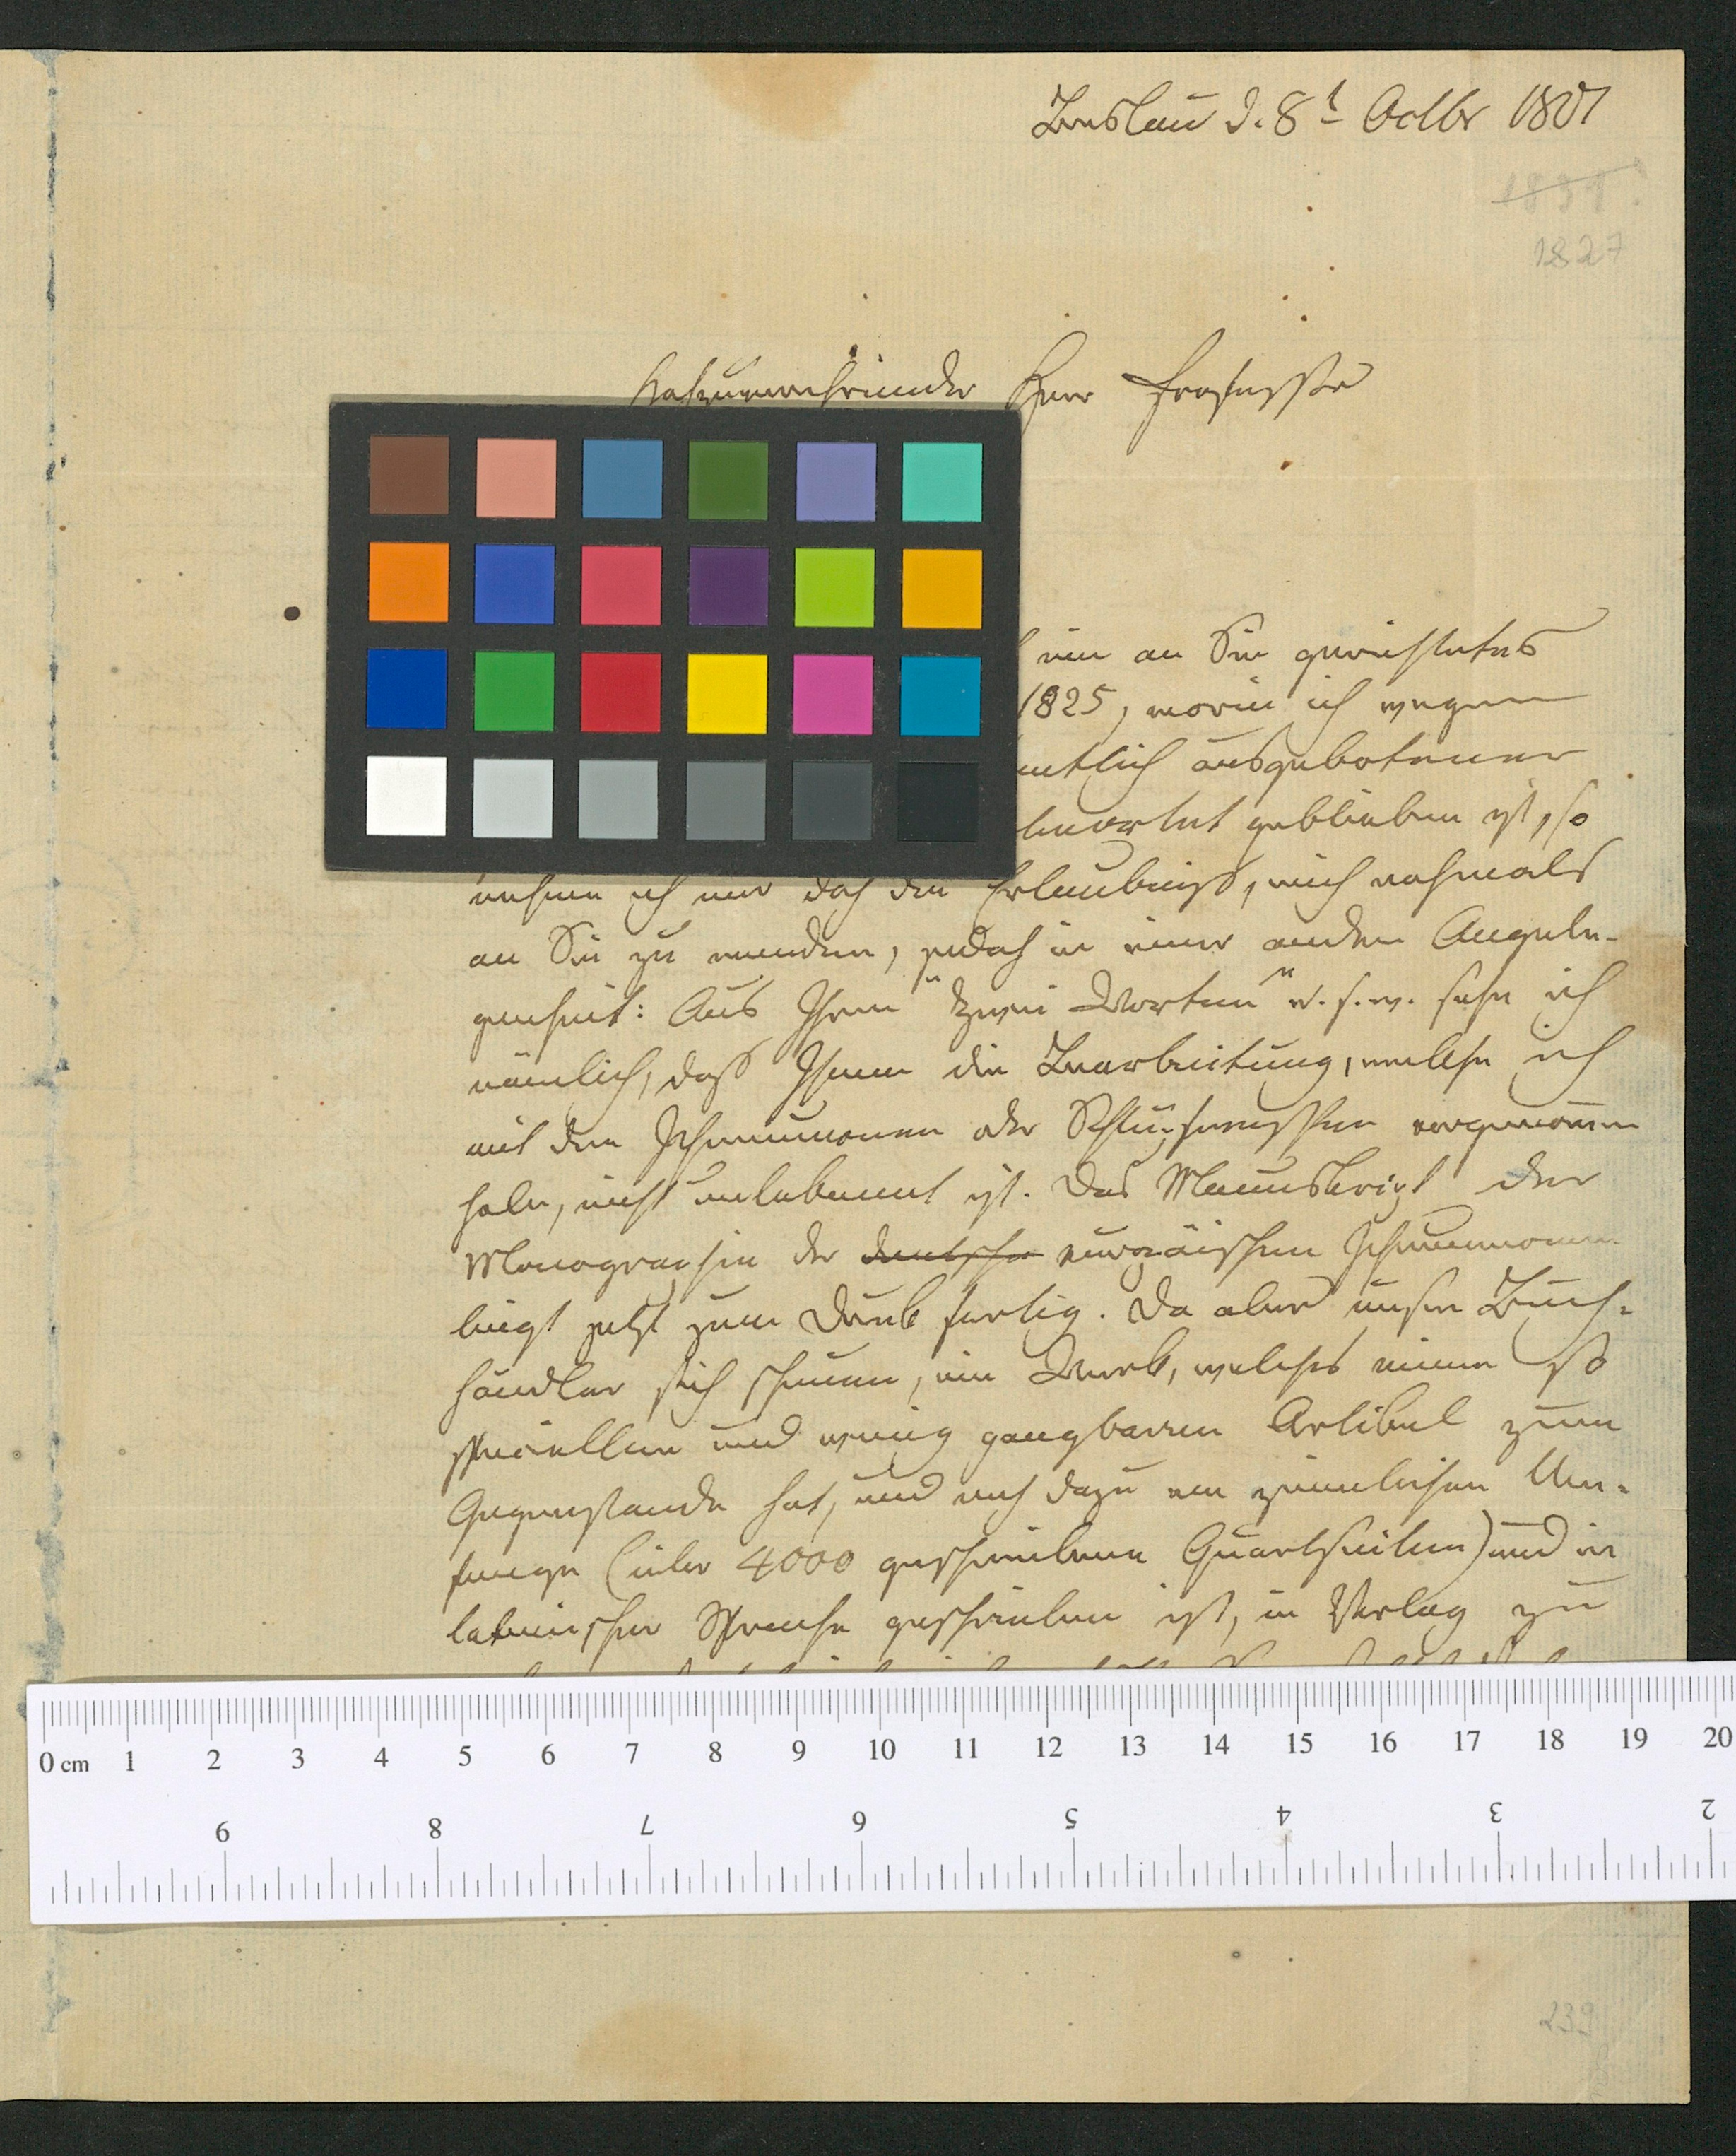 Breslau d. 8t Octbr 1827
1831.
1827
Hochzuverehrender Herr Professor
ein an Sie gerichtetes
1825, worin ich wegen
entlich ausgebotener
beantwortet geblieben ist, so
nehme ich mir doch die Erlaubniß, mich nochmals
an Sie zu wenden, jedoch in einer andern Angele-
genheit: Aus Ihren "Zwei Worten" u. s. w. sehe ich
nämlich, daß Ihnen die Bearbeitung, welche ich
mit den Ichneumonen oder Schlupfwespen vorgenom̅en
habe, nicht unbekannt ist. Das Manuskript der
Monographie der deutschen europäischen Ichneumonen
liegt jetzt zum Druck fertig. Da aber unsre Buch-
händler sich scheuen, ein Werk, welches einen so
speciellen und wenig gangbaren Artikel zum
Gegenstande hat, und noch dazu von ziemlichen Um-
fange (über 4000 geschriebene Quartseiten) und in
lateinischer Sprache geschrieben ist, in Verlag zu
0 cm 1 2 3 4 5 6 7 8 9 10 11 12 13 14 15 16 17 18 19 20
9 8 7 6 5 4 3 2
239